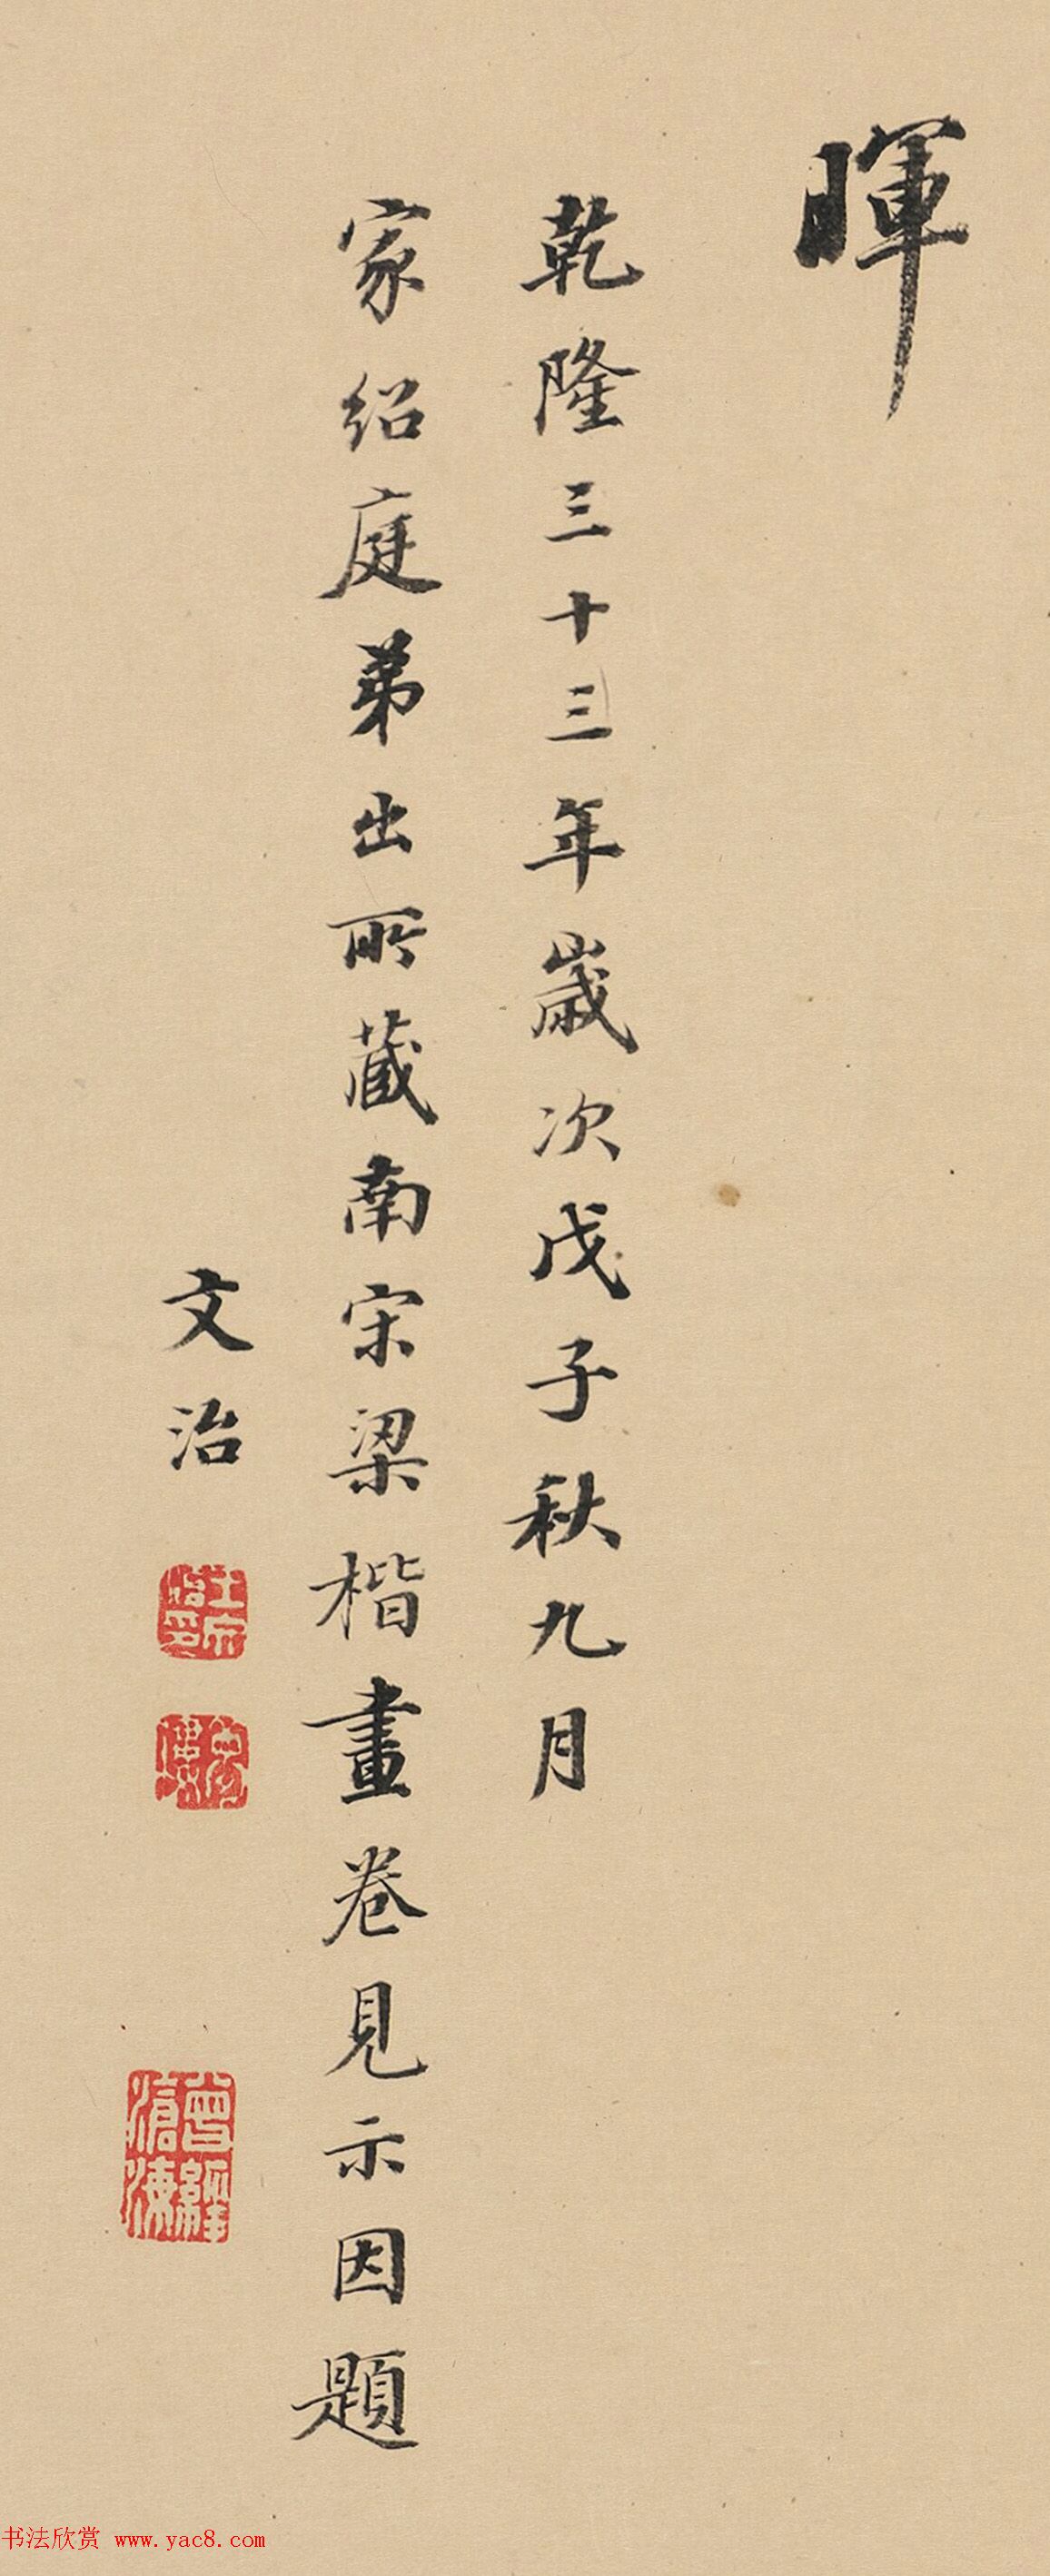 暉
乾隆三十三年歲次戊子秋九月
家紹庭弟出所藏南宋梁楷畫卷見示因題
文治
王文治印
曾經滄海
书法欣赏 www.yac8.com